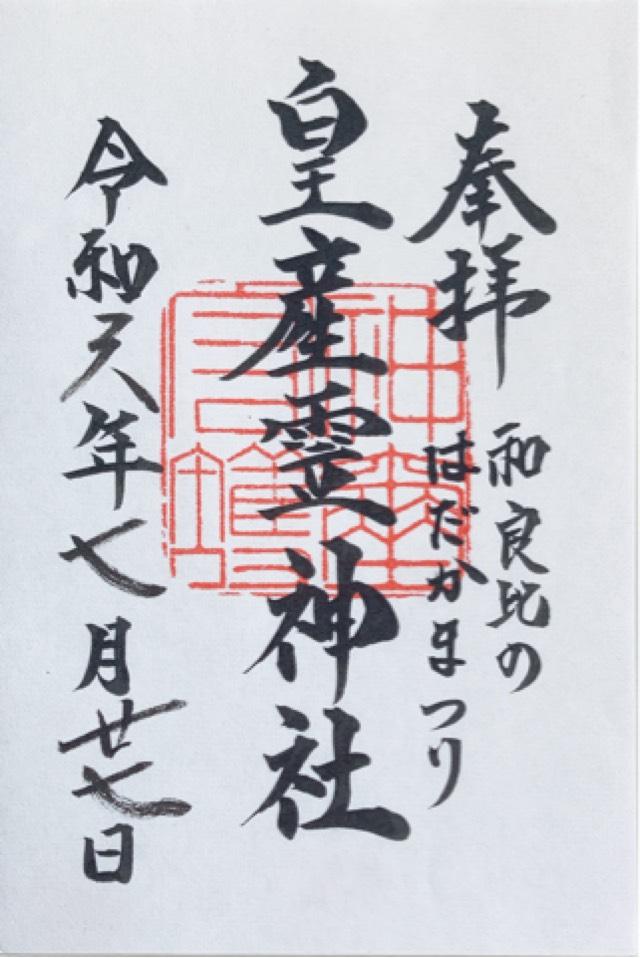 奉拝
和良比の
はだかまつり
皇産霊神社
令和元年七月廿七日